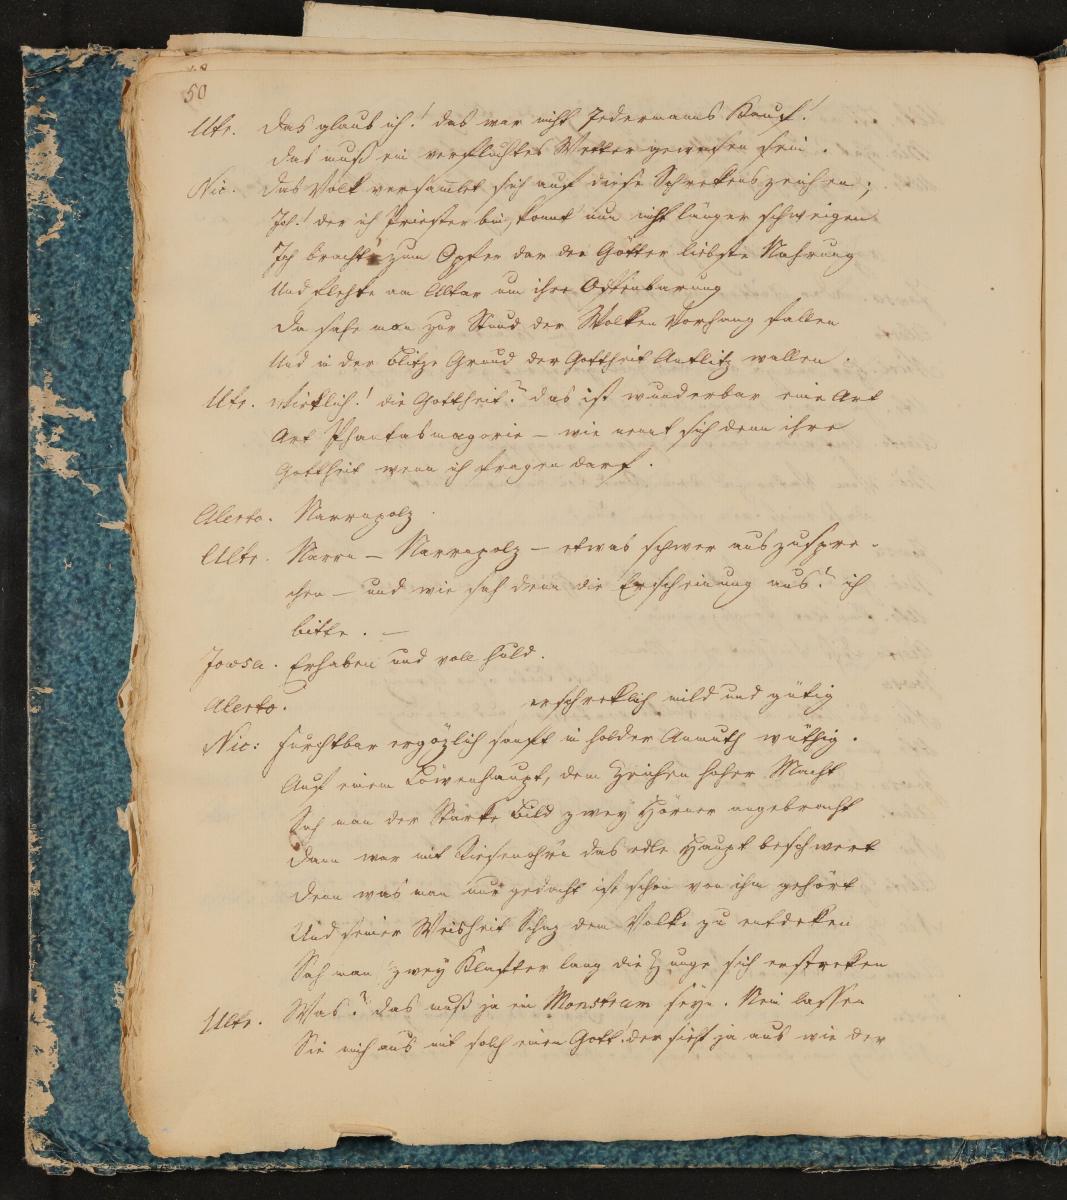 50
Ultr. Das glaub ich! das war nicht Jedermanns Kauf!
das muß ein verfluchtes Wetter gewesen sein.
Nic. Das Volk versamlet sich auf diese Schrekenszeichen;
Ich! der ich Priester bin, konnt nun nicht länger schweigen
Ich bracht zum Opfer dar der Götter liebste Nahrung
Und flehte am Altar um ihre Offenbarung
Da sahe man zur Stund der Wolken Vorhang fallen
Und in der Blitze Grund der Gottheit Antlitz wallen.
Ultr. Wirklich! die Gottheit? das ist wunderbar eine Art
Art Phantasmagorie – wie nennt sich denn ihre
Gottheit wenn ich fragen darf.
Alerto. Narrapolz.
Ultr. Narra – Narrapolz – etwas schwer auszuspre-
chen – und wie sah denn die Erscheinung aus? ich
bitte. –
Jowsa. Erhaben und voll Huld.
Alerto. erschreklich mild und gütig
Nic: Furchtbar ergözlich sanft in holder Anmuth wüthig.
Auf einem Löwenhaupt, dem Zeichen hoher Macht
Sah man der Stärke Bild zwey Hörner angebracht
Dann war mit Riesenohrn das edle Haupt beschwert
Denn was man nur gedacht ist schon von ihm gehört
Und seiner Weisheit Schaz dem Volke zu entdeken
Sah man zwey Klafter lang die Zunge sich erstreken
Ultr. Was? das muß ja ein Monstrum seyn. Nein lassen
Sie mich aus mit solch einen Gott! der sieht ja aus wie der